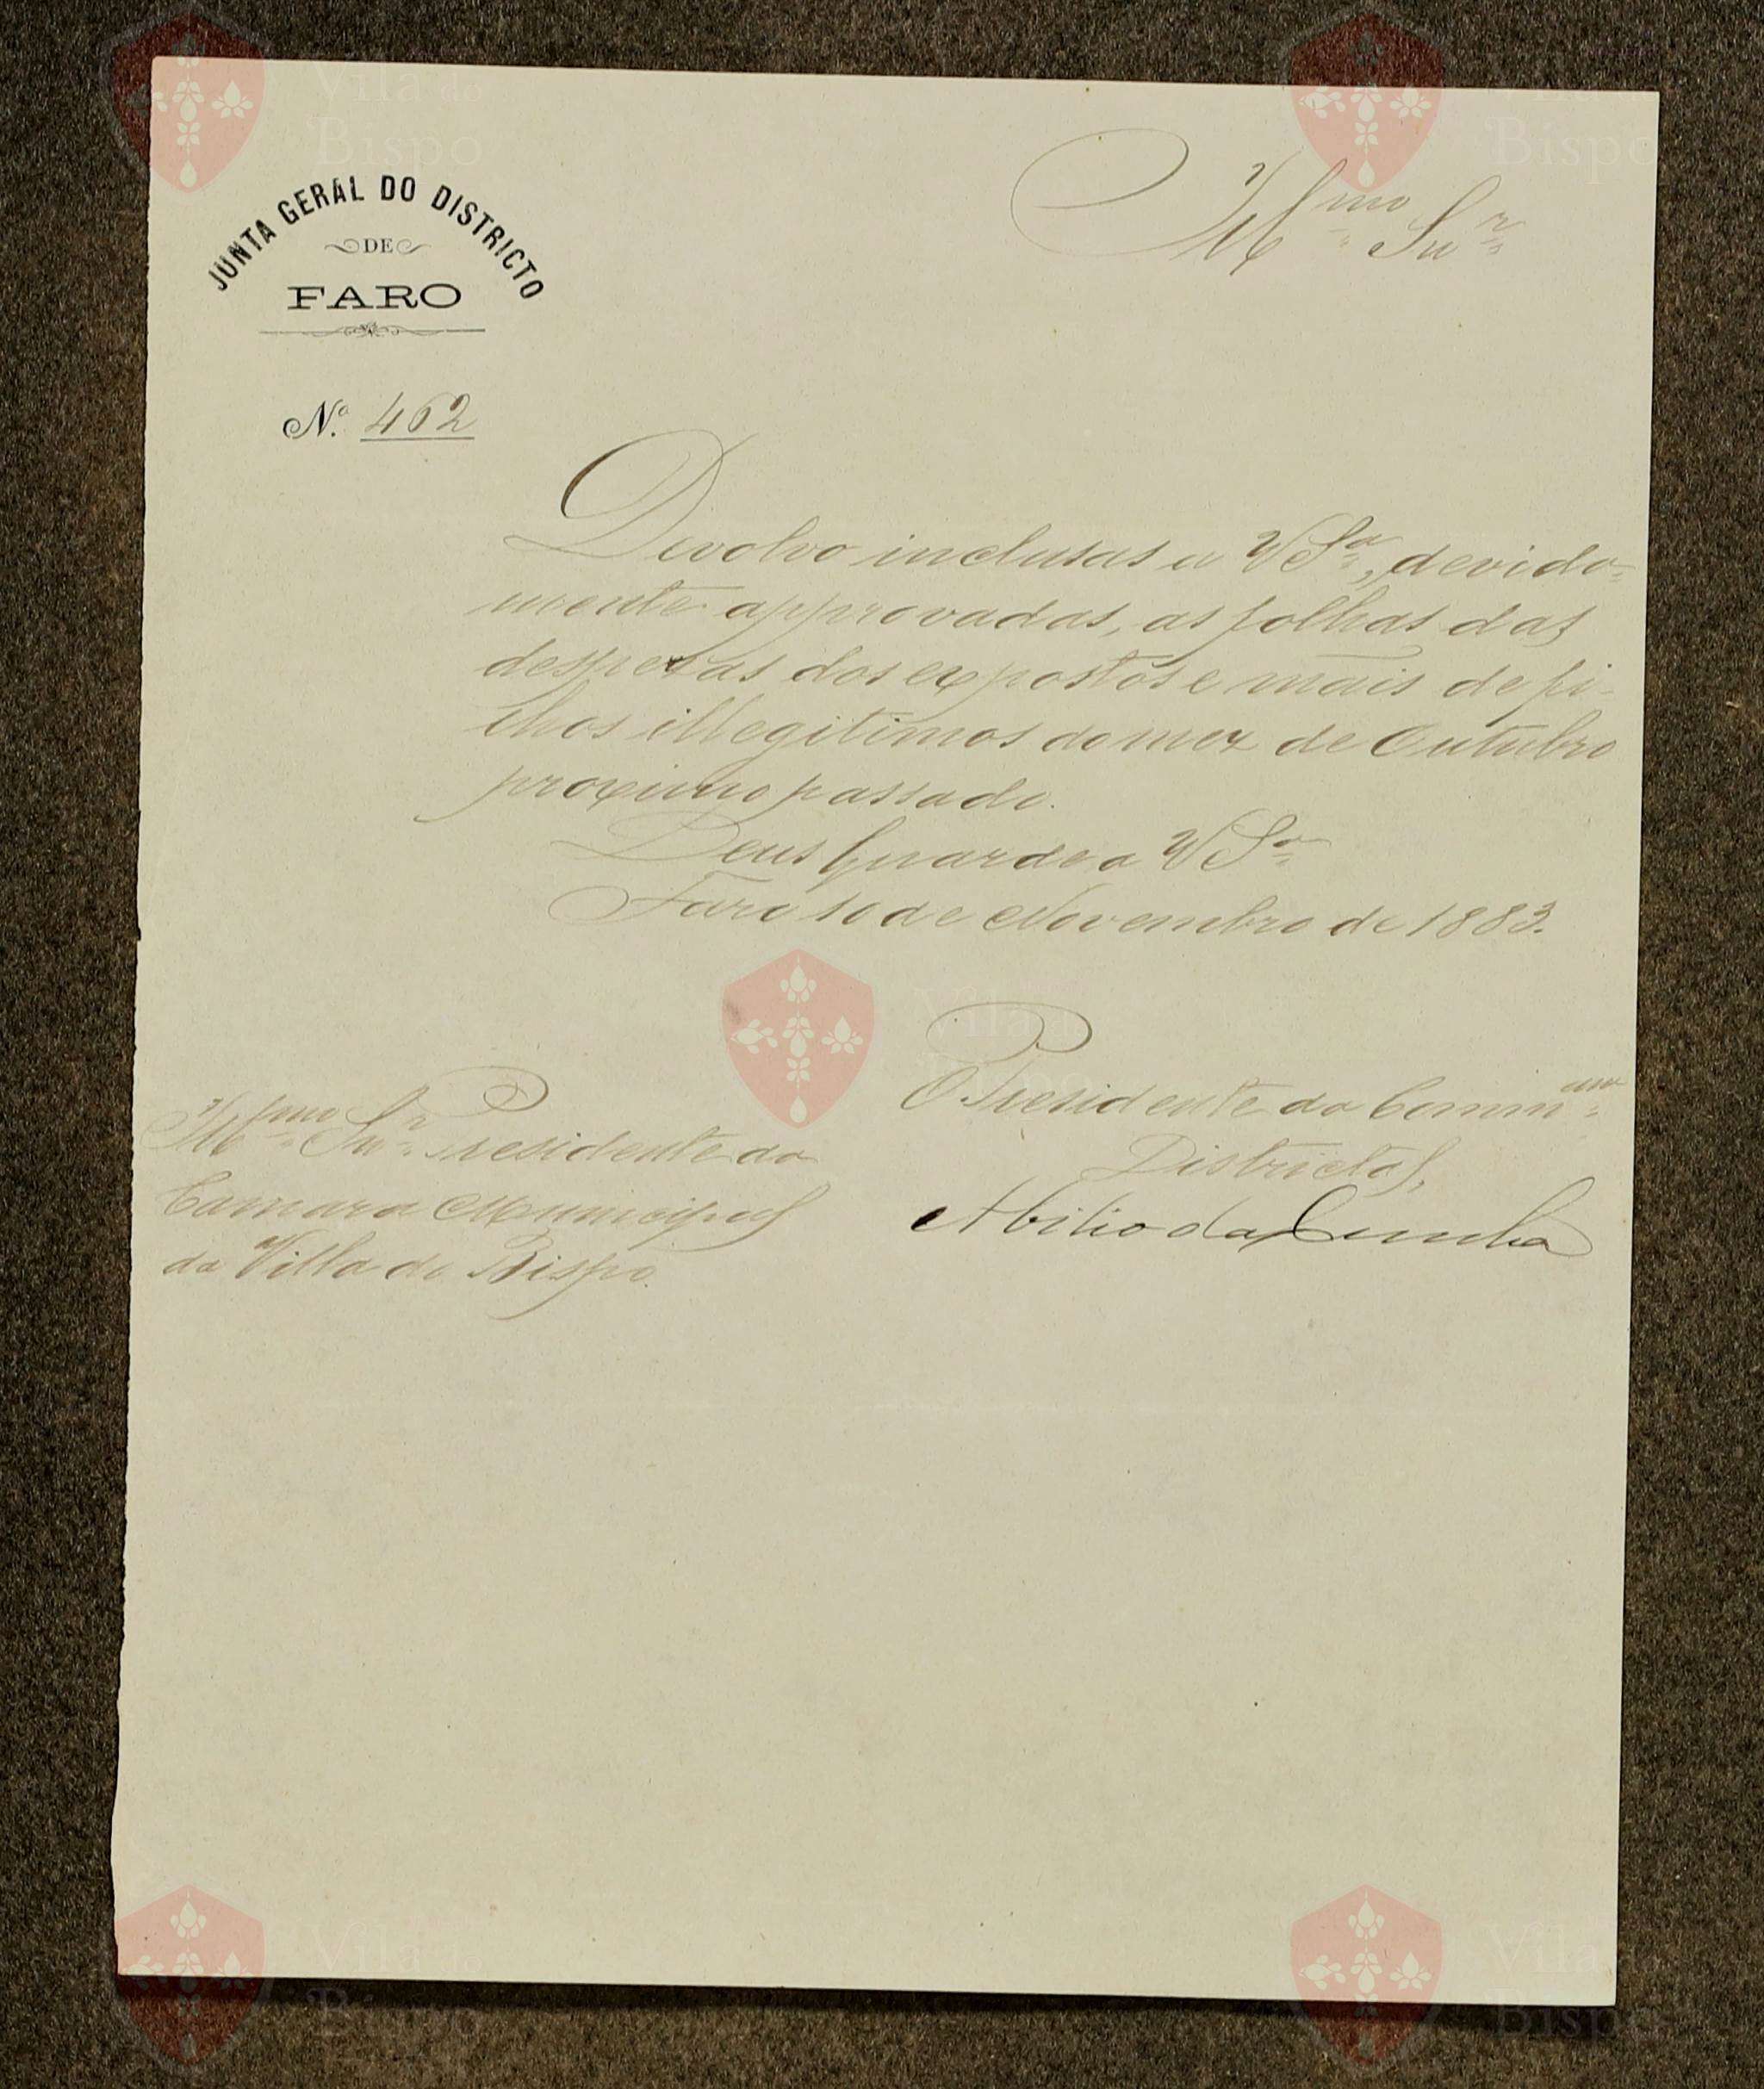 JUNTA GERAL DO DISTRICTO
DE
FARO
Nº 462
Illmo Snr
Devolvo inclusas a VSa, devida-
mente approvadas, as folhas das
despezas dos expostos e mais de fi-
lhos illegitimos do mez de Outubro
proximo passado.
Deus Guarde a VSa
Faro 10 de Novembro de 1883.
O Presidente da Commam
Districtal,
Abilio da Cunha
Illmo Snr Presidente da
Camara Municipal
da Villa do Bispo.
Vila do
Bispo
Vila do
Bispo
Vila do
Bispo
Vila do
Bispo
Vila do
Bispo